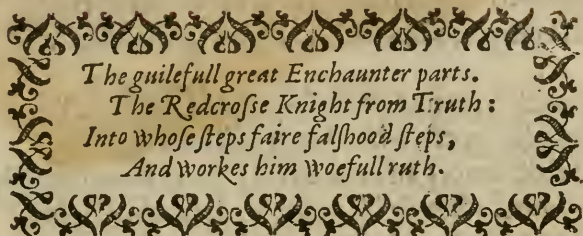 The guilefull great Enchaunter parts.
The Redcroſſe Knight from Truth:
Into whoſe ſteps faire falſhood ſteps,
And workes him woefull ruth.